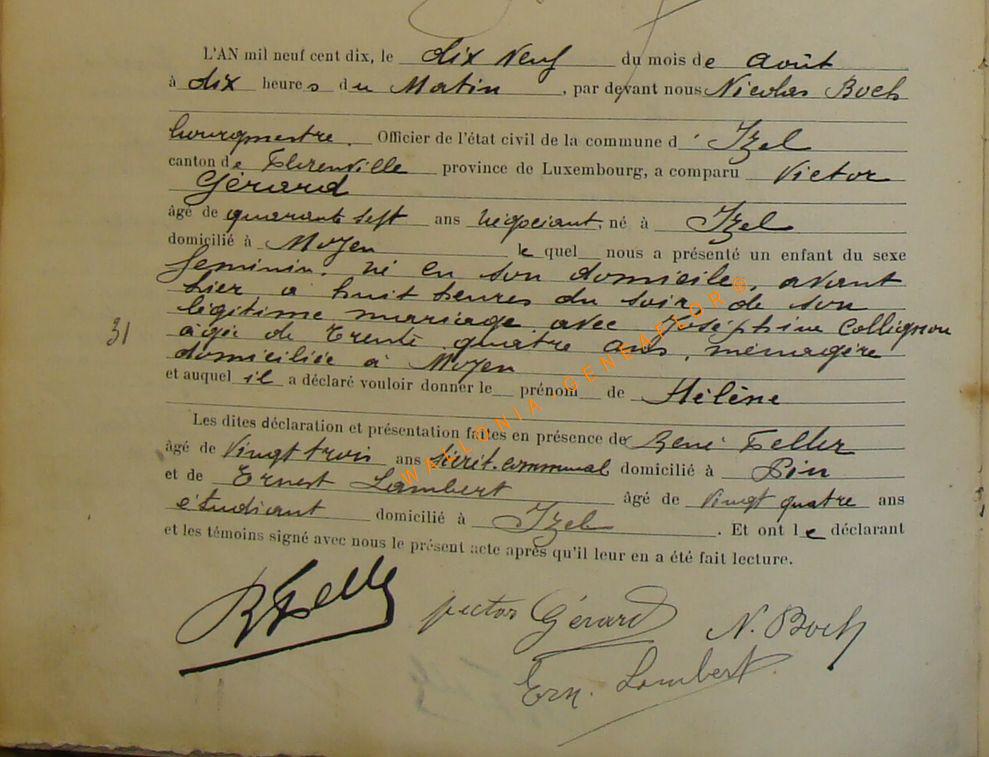 L'AN mil neuf cent dix, le dix Neuf du mois de Août
à dix heures du Matin, par devant nous Nicolas Boch
bourgmestre. Officier de l'état civil de la commune d' Izel
canton de Florenville province de Luxembourg, a comparu Victor
Gérard
âgé de quarante sept ans négociant, né à Izel
domicilié à Moyen le quel nous a présenté un enfant du sexe
feminin, né en son domicile, avant
hier à huit heures du soir, de son
légitime mariage avec Joséphine Collignon
31
agée de trente quatre ans, ménagère
domiciliée à Moyen
et auquel il a déclaré vouloir donner le prénom de Hélène
Les dites déclaration et présentation faites en présence de René Feller
âgé de Vingt trois ans secrét. communal domicilié à Pin
et de Ernest Lambert âgé de vingt quatre ans
étudiant domicilié à Izel. Et ont le déclarant
et les témoins signé avec nous le présent acte après qu'il leur en a été fait lecture.
WALLONIA-GENEAFLOR®
R Feller Victor Gérard N. Boch
Ern. Lambert